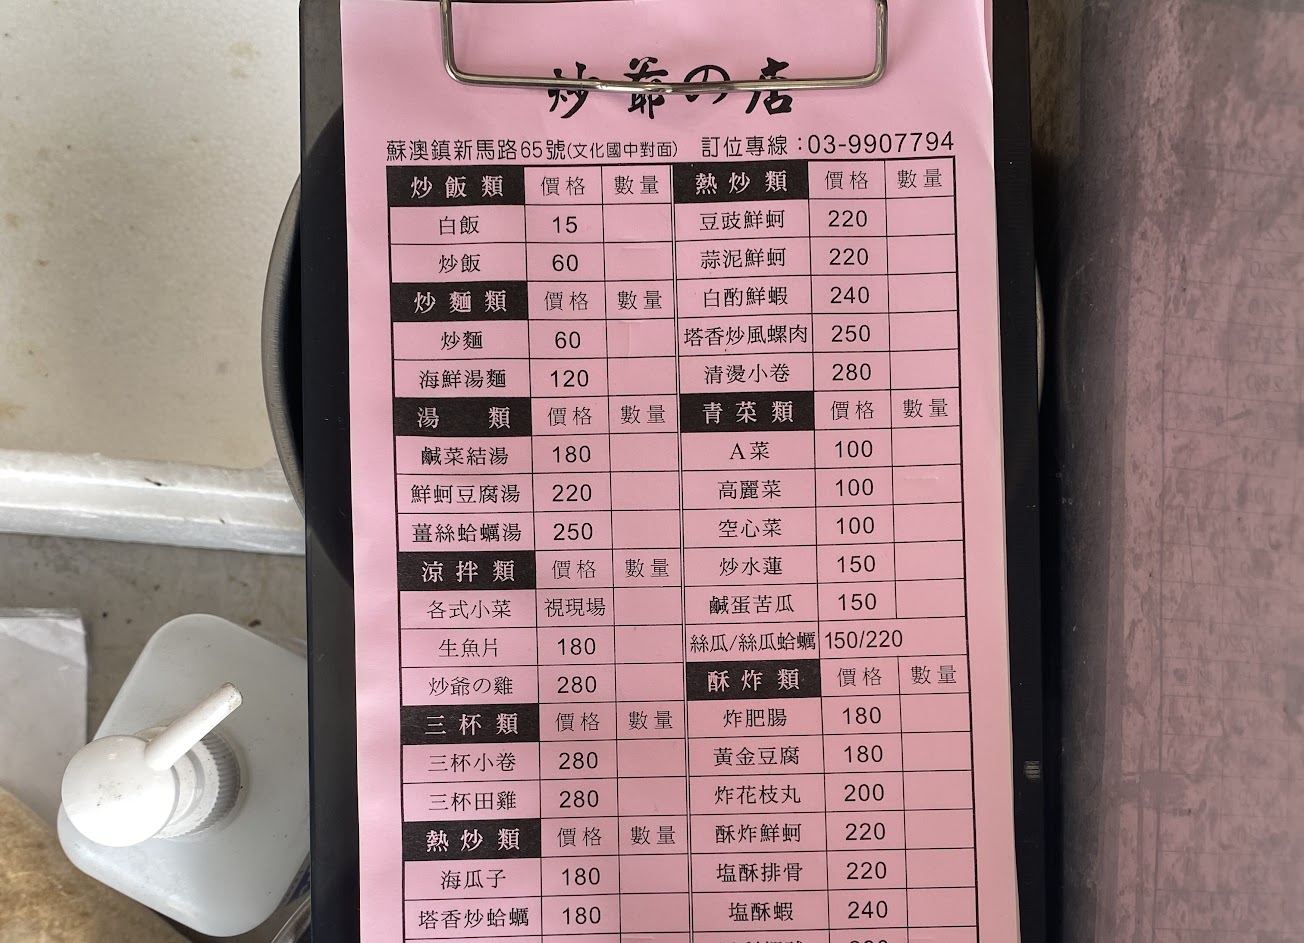 炒爺の店
蘇澳鎮新馬路65號(文化國中對面) 訂位專線:03-9907794
炒飯類 價格 數量
白飯 15
炒飯 60
炒麵類 價格 數量
炒麵 60
海鮮湯麵 120
湯類 價格 數量
鹹菜結湯 180
鮮蚵豆腐湯 220
薑絲蛤蠣湯 250
涼拌類 價格 數量
各式小菜 視現場
生魚片 180
炒爺の雞 280
三杯類 價格 數量
三杯小卷 280
三杯田雞 280
熱炒類 價格 數量
海瓜子 180
塔香炒蛤蠣 180
熱炒類 價格 數量
豆豉鮮蚵 220
蒜泥鮮蚵 220
白酌鮮蝦 240
塔香炒風螺肉 250
清燙小卷 280
青菜類 價格 數量
A菜 100
高麗菜 100
空心菜 100
炒水蓮 150
鹹蛋苦瓜 150
絲瓜/絲瓜蛤蠣 150/220
酥炸類 價格 數量
炸肥腸 180
黃金豆腐 180
炸花枝丸 200
酥炸鮮蚵 220
塩酥排骨 220
塩酥蝦 240